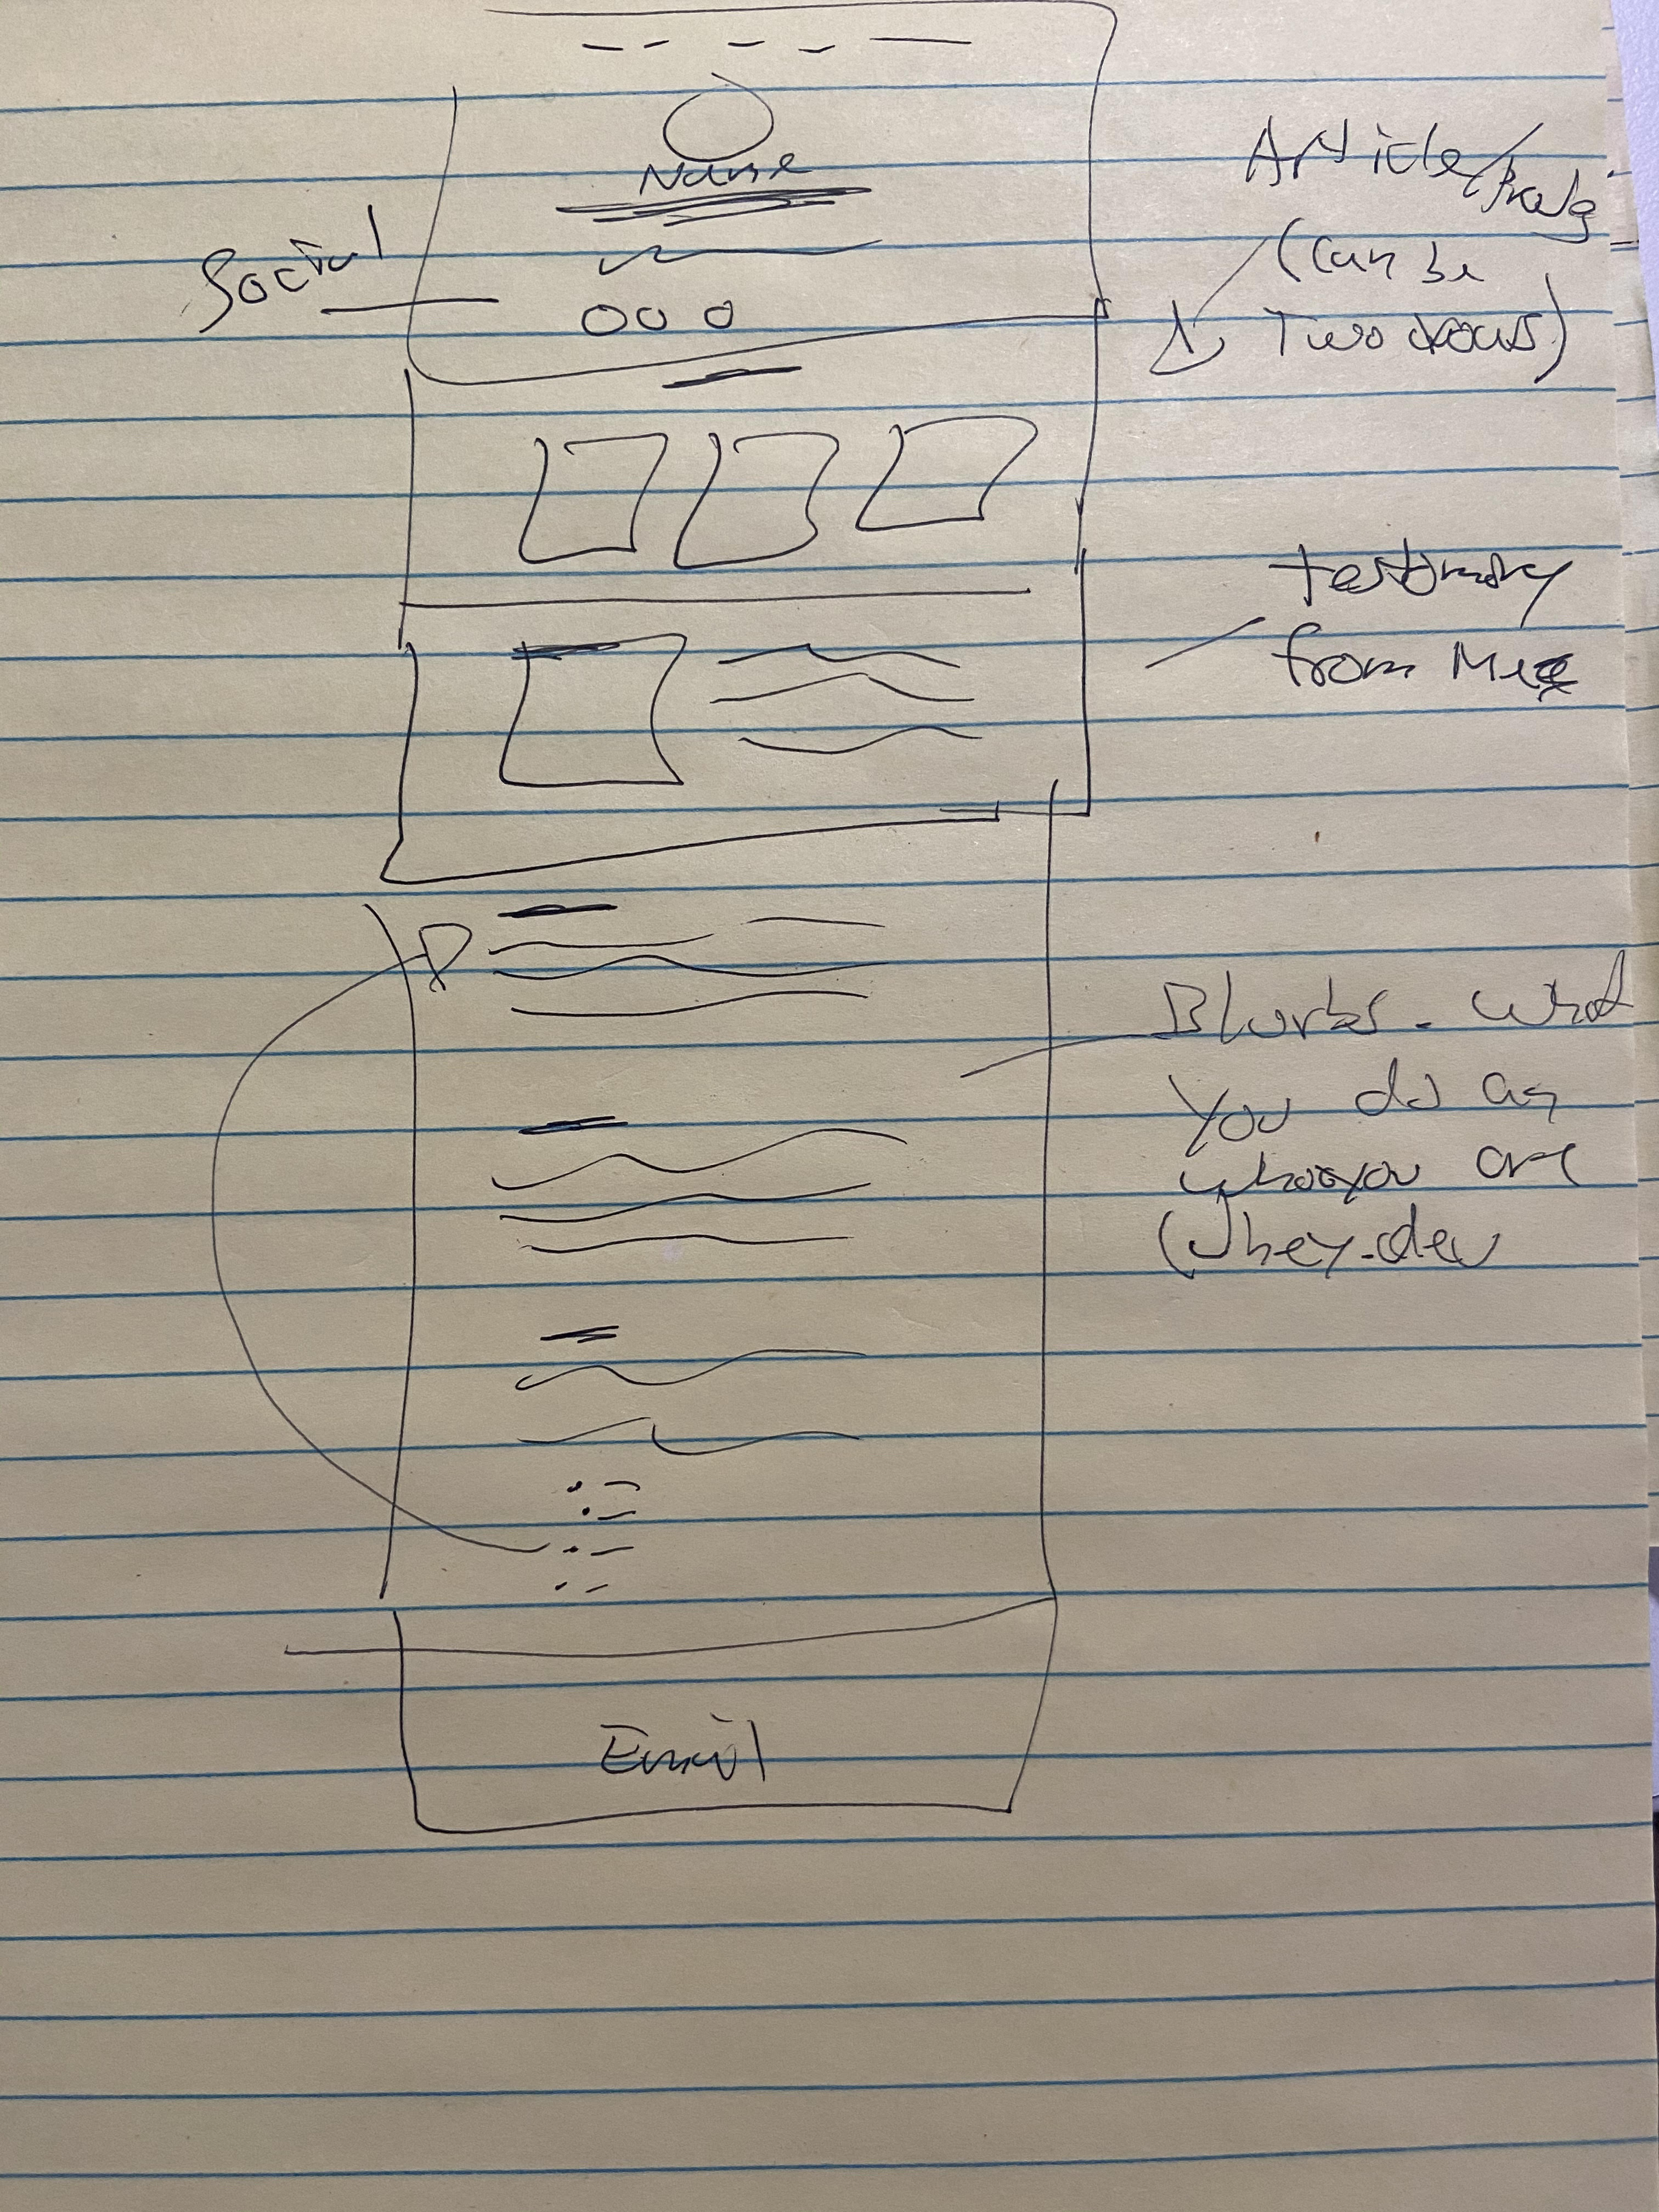 Name
Social
Article/
(Can be
Two rows)
testimony
from
Blurbs - what
you do as
who you are
Jhey.dev
Email